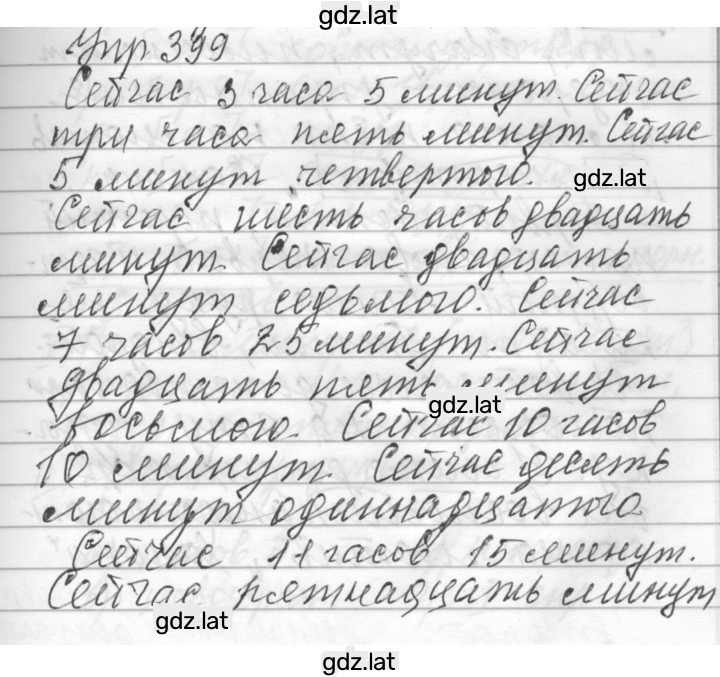 gdz.lat
Упр 399
Сейчас 3 часа 5 минут. Сейчас
три часа пять минут. Сейчас
5 минут четвертого.
gdz.lat
Сейчас шесть часов двадцать
минут. Сейчас двадцать
минут седьмого. Сейчас
7 часов 25 минут. Сейчас
двадцать пять минут
gdz.lat
восьмого. Сейчас 10 часов
10 минут. Сейчас десять
минут одиннадцатого
Сейчас 11 часов 15 минут.
Сейчас пятнадцать минут
gdz.lat
gdz.lat